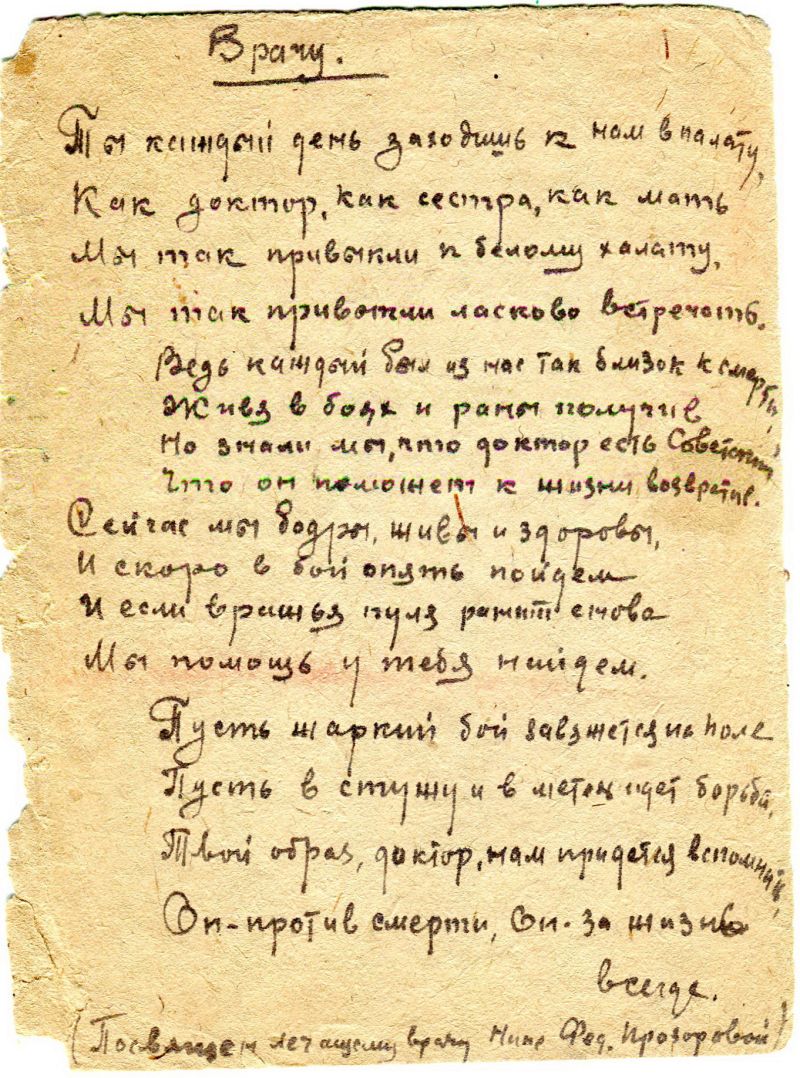 Врачу.
Ты каждый день заходишь к нам в палату,
Как доктор, как сестра, как мать
Мы так привыкли к белому халату,
Мы так привыкли ласково встречать.
Ведь каждый был из нас так близок к смерти,
Живя в боях и раны получив
Но знали мы, что доктор есть Советский
Что он поможет к жизни возвратив.
Сейчас мы бодры, живы и здоровы,
И скоро в бой опять пойдем
И если вражья пуля ранит снова
Мы помощь у тебя найдем.
Пусть жаркий бой завяжется на поле
Пусть в стужу и в метель идет борьба,
Твой образ, доктор, нам придется вспомнить,
Он-против смерти, Он-за жизнь
всегда.
(Посвящаем лечащему врачу Нине Фед. Прозоровой)